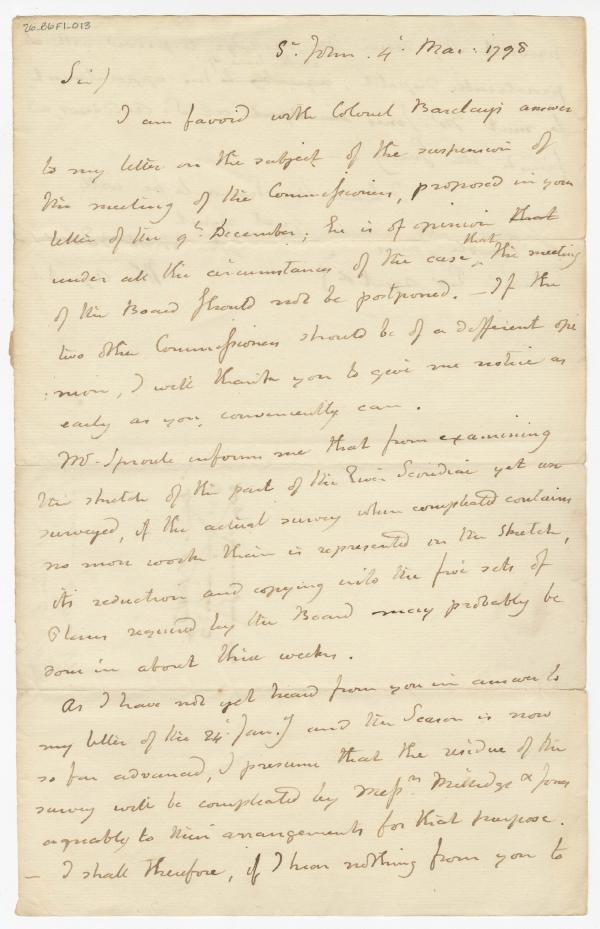 26-B6F1-013
St. John. 4th. Mar. 1798
Sir/
I am favord with Colonel Barclay's answer
to my letter on the subject of the suspension of
the meeting of the Commissioners, proposed in your
letter of the 9th. December; he is of opinion that
under all the circumstances of the case, that the meeting
of the Board should not be postponed. — If the
two other Commissioners should be of a different opi
:nion, I will thank you to give me notice as
early as you conveniently can.
Mr. Sproule informs me that from examining
the sketch of the part of the River Scoudiac yet un
surveyed, if the actual survey when completed contains
no more work than is represented in the Sketch,
its reduction and copying into the five sets of
Plans required by the Board may probably be
done in about three weeks.
As I have not yet heard from you in answer to
my letter of the 24th. Jan.y and the Season is now
so far advanced, I presume that the residue of the
survey will be completed by Messrs. Millidge & Jones
agreably to their arrangements for that purpose.
— I shall therefore, if I hear nothing from you to